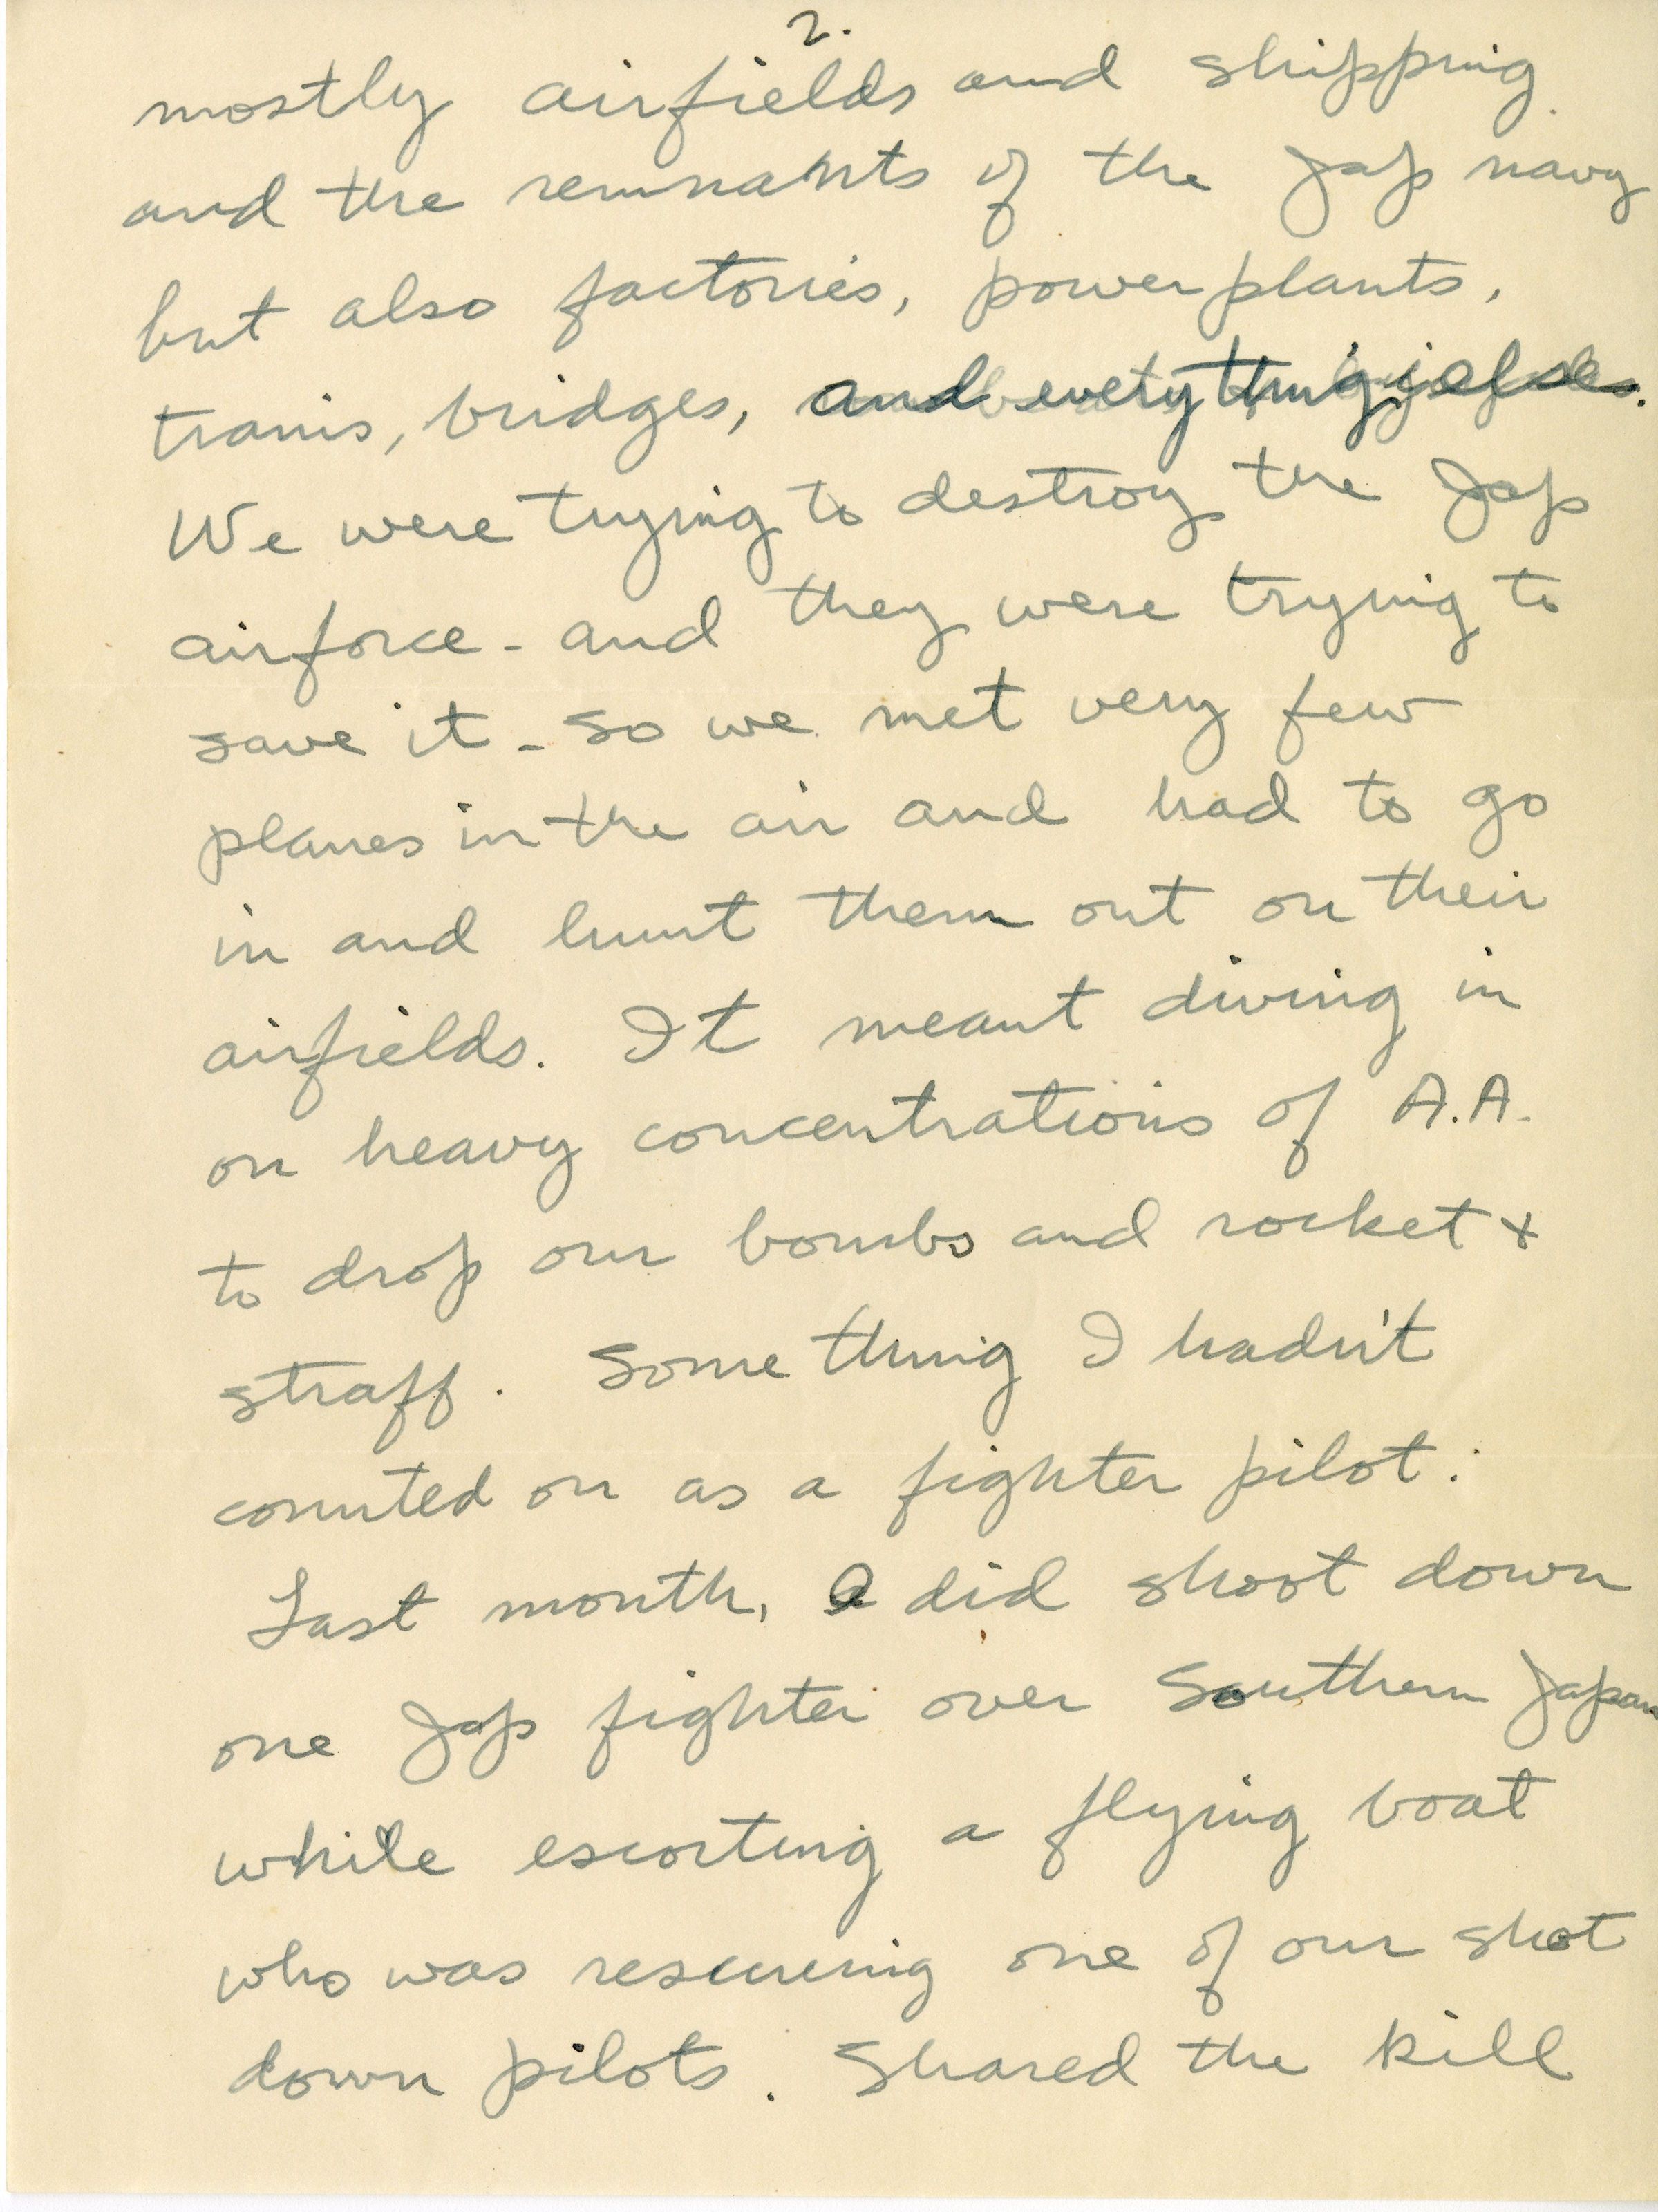 2.
mostly airfields and shipping
and the remnants of the Jap navy
but also factories, powerplants,
trains, bridges, and everything else.
We were trying to destroy the Jap
airforce - and they were trying to
save it - so we met very few
planes in the air and had to go
in and hunt them out on their
airfields. It meant diving in
on heavy concentrations of A.A.
to drop our bombs and rocket +
straff. Something I hadn't
counted on as a fighter pilot.
Last month, I did shoot down
one Jap fighter over Southern Japan
while escorting a flying boat
who was rescueing one of our shot
down pilots. Shared the kill